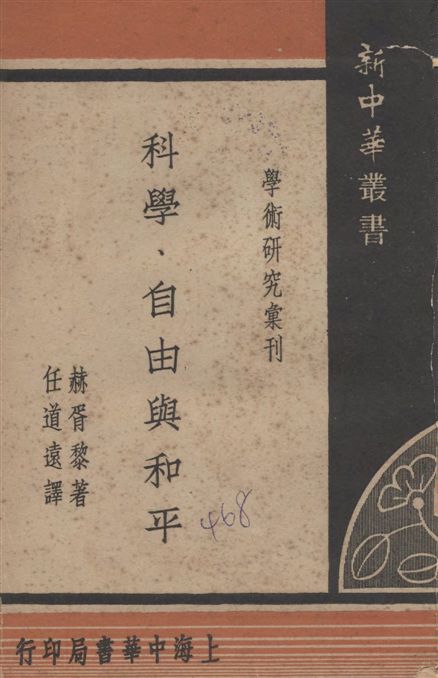 新中華叢書
學術研究彙刊
科學、自由與和平
赫胥黎著
任道遠譯
468
上海中華書局印行